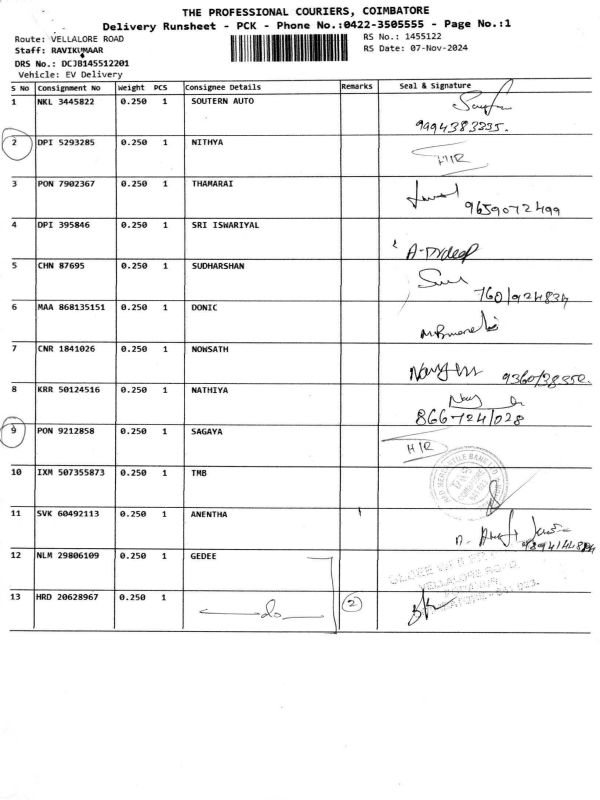 THE PROFESSIONAL COURIERS, COIMBATORE
Delivery Runsheet - PCK - Phone No.:0422-3505555 - Page No.:1
Route: VELLALORE ROAD RS No.: 1455122
Staff: RAVIKUMAAR RS Date: 07-Nov-2024
DRS No.: DCJB145512201
Vehicle: EV Delivery
S No Consignment No Weight PCS Consignee Details Remarks Seal & Signature
1 NKL 3445822 0.250 1 SOUTERN AUTO
2 DPI 5293285 0.250 1 NITHYA H/R
3 PON 7902367 0.250 1 THAMARAI 9659072499
4 DPI 395846 0.250 1 SRI ISWARIYAL
5 CHN 87695 0.250 1 SUDHARSHAN
6 MAA 868135151 0.250 1 DONIC
7 CNR 1841026 0.250 1 NOWSATH
8 KRR 50124516 0.250 1 NATHIYA
9 PON 9212858 0.250 1 SAGAYA H/R
10 IXM 507355873 0.250 1 TMB
11 SVK 60492113 0.250 1 ANENTHA
12 NLM 29806109 0.250 1 GEDEE
13 HRD 20628967 0.250 1 do 2